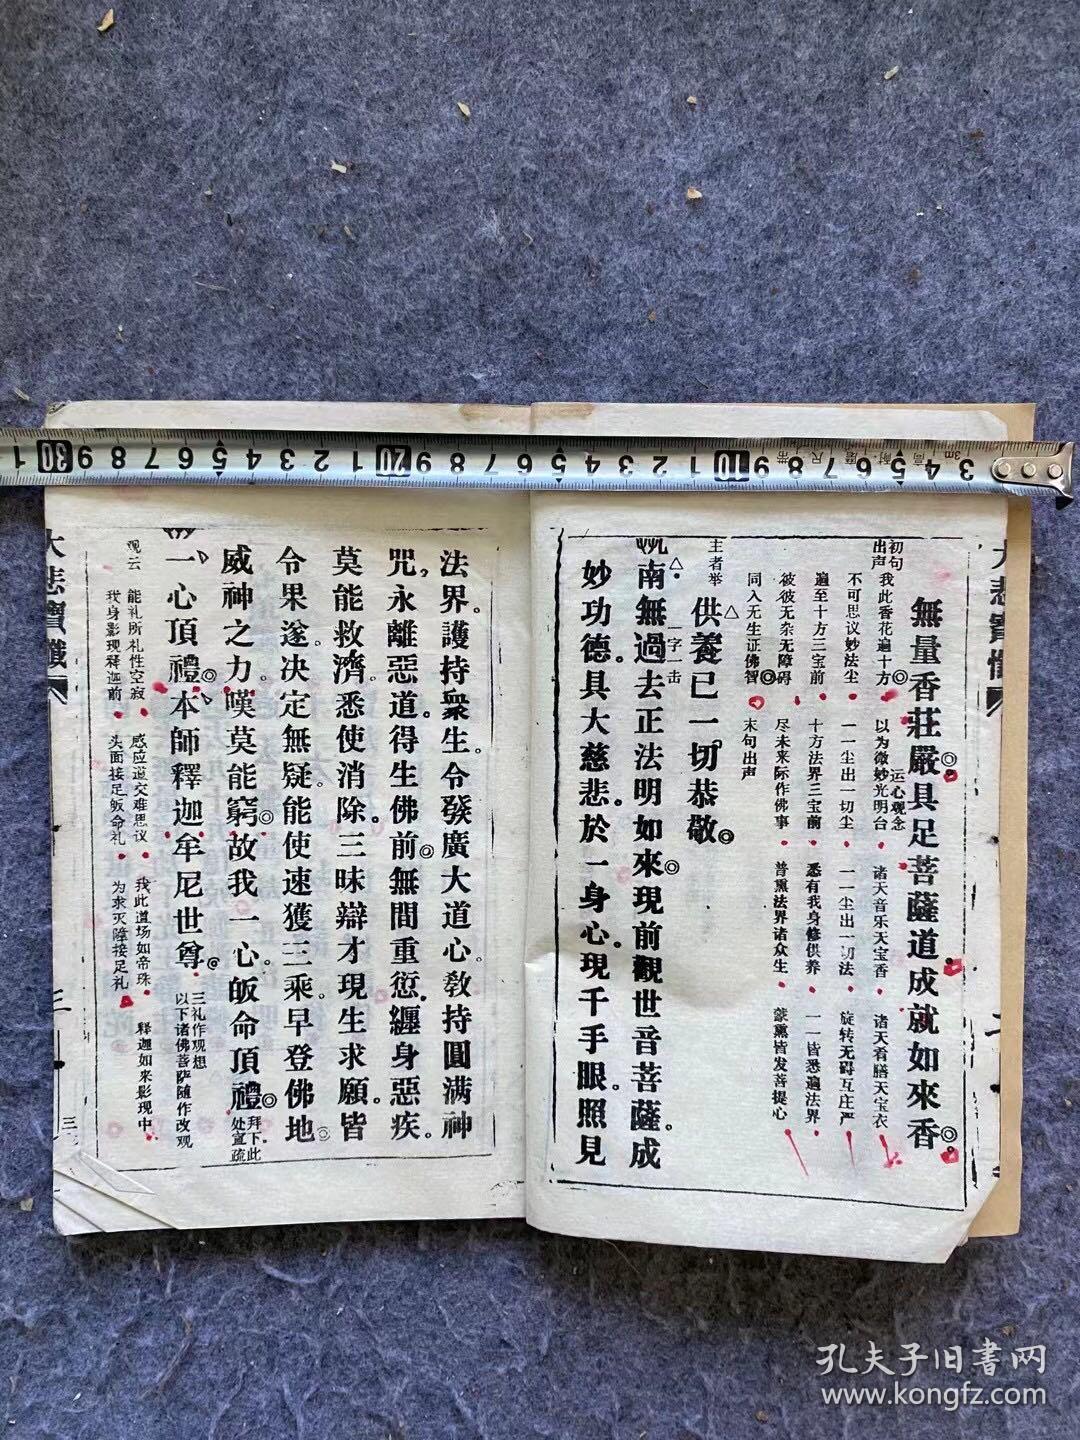 大悲寶懺
無量香莊嚴具足菩薩道成就如來香
初句出声
我此香花遍十方 以为微妙光明台 诸天音乐天宝香 诸天肴膳天宝衣
运心观念
不可思议妙法尘 一一尘出一切尘 一一尘出一切法 旋转无碍互庄严
遍至十方三宝前 十方法界三宝前 悉有我身修供养 一一皆悉遍法界
彼彼无杂无障碍 尽未来际作佛事 普熏法界诸众生 蒙熏皆发菩提心
同入无生证佛智 末句出声
主者举
供養已一切恭敬
一字一击
南無過去正法明如來現前觀世音菩薩成
妙功德具大慈悲於一身心現千手眼照見
法界。護持衆生。令發廣大道心。教持圓满神
咒。永離惡道。得生佛前。無間重愆。纏身惡疾。
莫能救濟。悉使消除。三昧辯才。現生求願。皆
令果遂。决定無疑。能使速獲三乘。早登佛地。
威神之力。嘆莫能窮。故我一心。皈命頂禮。
拜下。此处宣疏
一心頂禮本師釋迦牟尼世尊
三礼作观想
以下诸佛菩萨随作改观
观云
能礼所礼性空寂 感应道交难思议 我此道场如帝珠 释迦如来影现中
我身影现释迦前 头面接足皈命礼 为求灭障接足礼
大悲寶懺
三
三
30 9 8 7 6 5 4 3 2 1 20 9 8 7 6 5 4 3 2 1 10 9 8 7 6 5 4 3
3m
孔夫子旧書网
www.kongfz.com